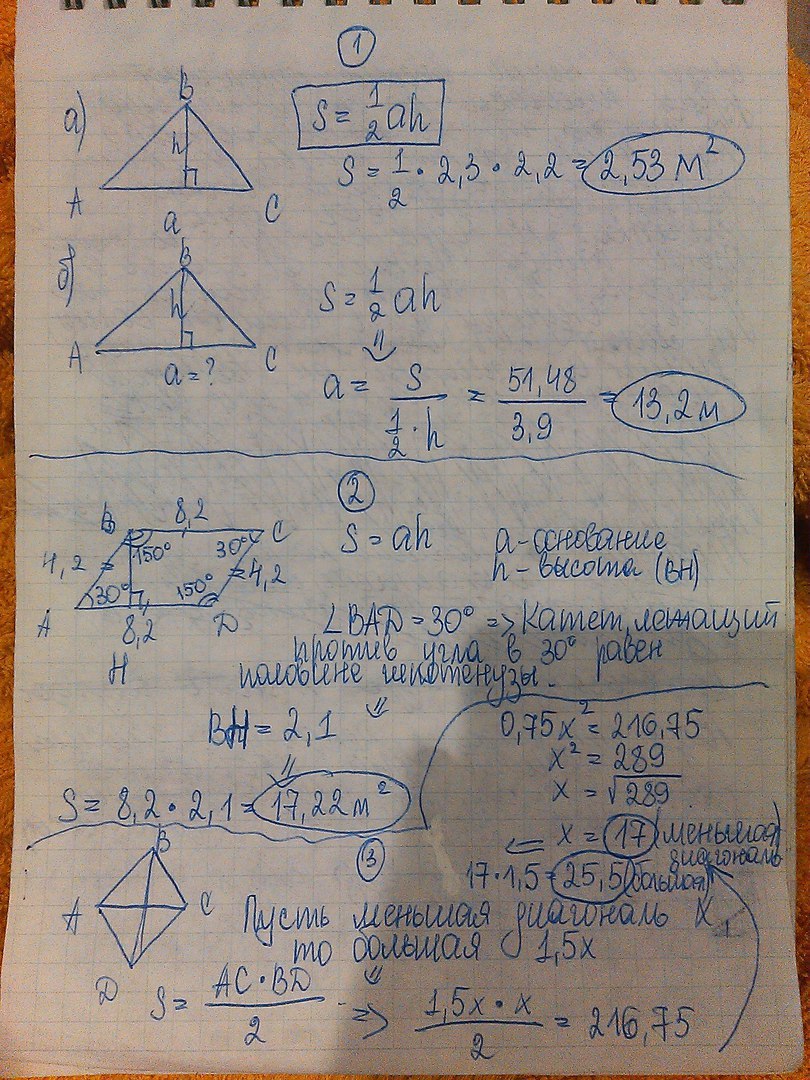 1
а)
B
h
A
C
a
S = 1/2 ah
S = 1/2 · 2,3 · 2,2 = 2,53 м²
б)
B
h
A
C
a = ?
S = 1/2 ah
⇓
a = S / (1/2 · h) = 51,48 / 3,9 = 13,2 м
2
B 8,2 C
150° 30°
4,2 4,2
30° 150°
A 8,2 D
H
S = ah
a - основание
h - высота (BH)
∠BAD = 30° => Катет, лежащий
против угла в 30° равен
половине гипотенузы.
⇓
BH = 2,1
⇓
S = 8,2 · 2,1 = 17,22 м²
3
B
A C
D
Пусть меньшая диагональ x,
то большая 1,5x
⇓
S = AC · BD / 2 => 1,5x · x / 2 = 216,75
0,75x² = 216,75
x² = 289
x = √289
x = 17 (меньшая
диагональ)
<=
17 · 1,5 = 25,5 (большая)